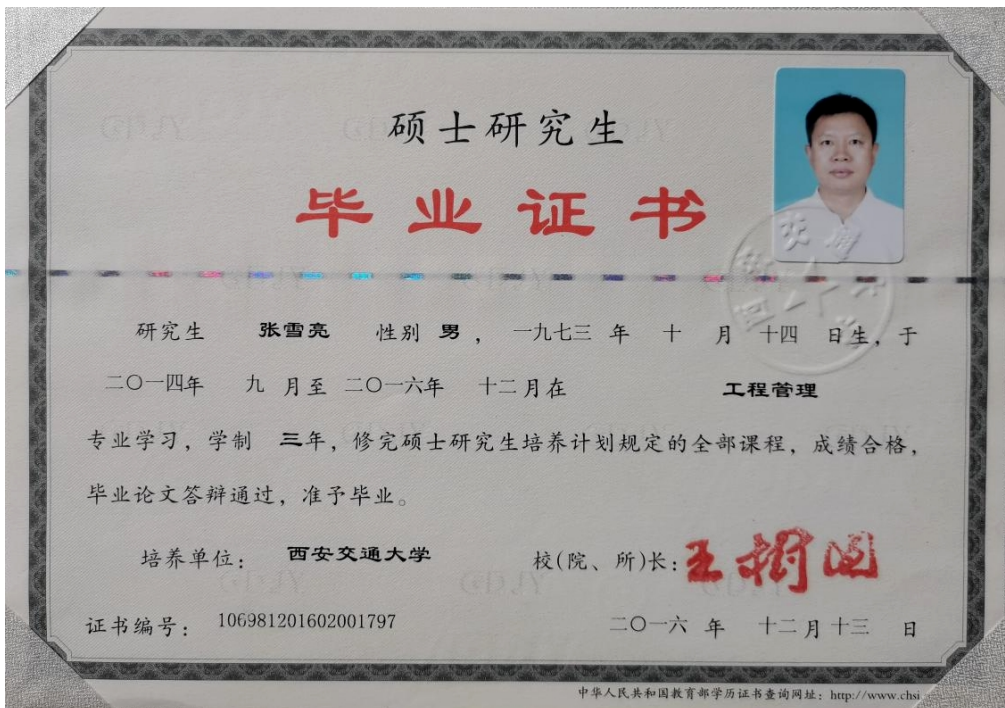 硕士研究生
毕业证书
研究生 张雪亮 性别 男 ， 一九七三 年 十 月 十四 日生，于
二〇一四年 九 月至 二〇一六年 十二月在 工程管理
专业学习，学制 三年，修完硕士研究生培养计划规定的全部课程，成绩合格，
毕业论文答辩通过，准予毕业。
培养单位： 西安交通大学 校(院、所)长：王树国
证书编号： 106981201602001797 二〇一六 年 十二月 十三 日
中华人民共和国教育部学历证书查询网址：http://www.chsi